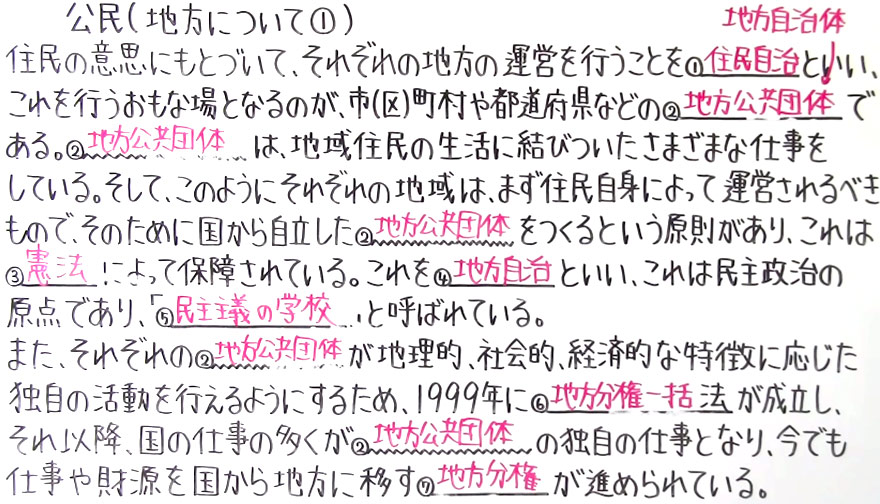 公民(地方について①)
地方自治体
住民の意思にもとづいて、それぞれの地方の運営を行うことを①住民自治といい、
これを行うおもな場となるのが、市(区)町村や都道府県などの②地方公共団体で
ある。②地方公共団体は、地域住民の生活に結びついたさまざまな仕事を
している。そして、このようにそれぞれの地域は、まず住民自身によって運営されるべき
もので、そのために国から自立した②地方公共団体をつくるという原則があり、これは
③憲法によって保障されている。これを④地方自治といい、これは民主政治の
原点であり、「⑤民主主義の学校」と呼ばれている。
また、それぞれの②地方公共団体が地理的、社会的、経済的な特徴に応じた
独自の活動を行えるようにするため、1999年に⑥地方分権一括法が成立し、
それ以降、国の仕事の多くが②地方公共団体の独自の仕事となり、今でも
仕事や財源を国から地方に移す⑦地方分権が進められている。